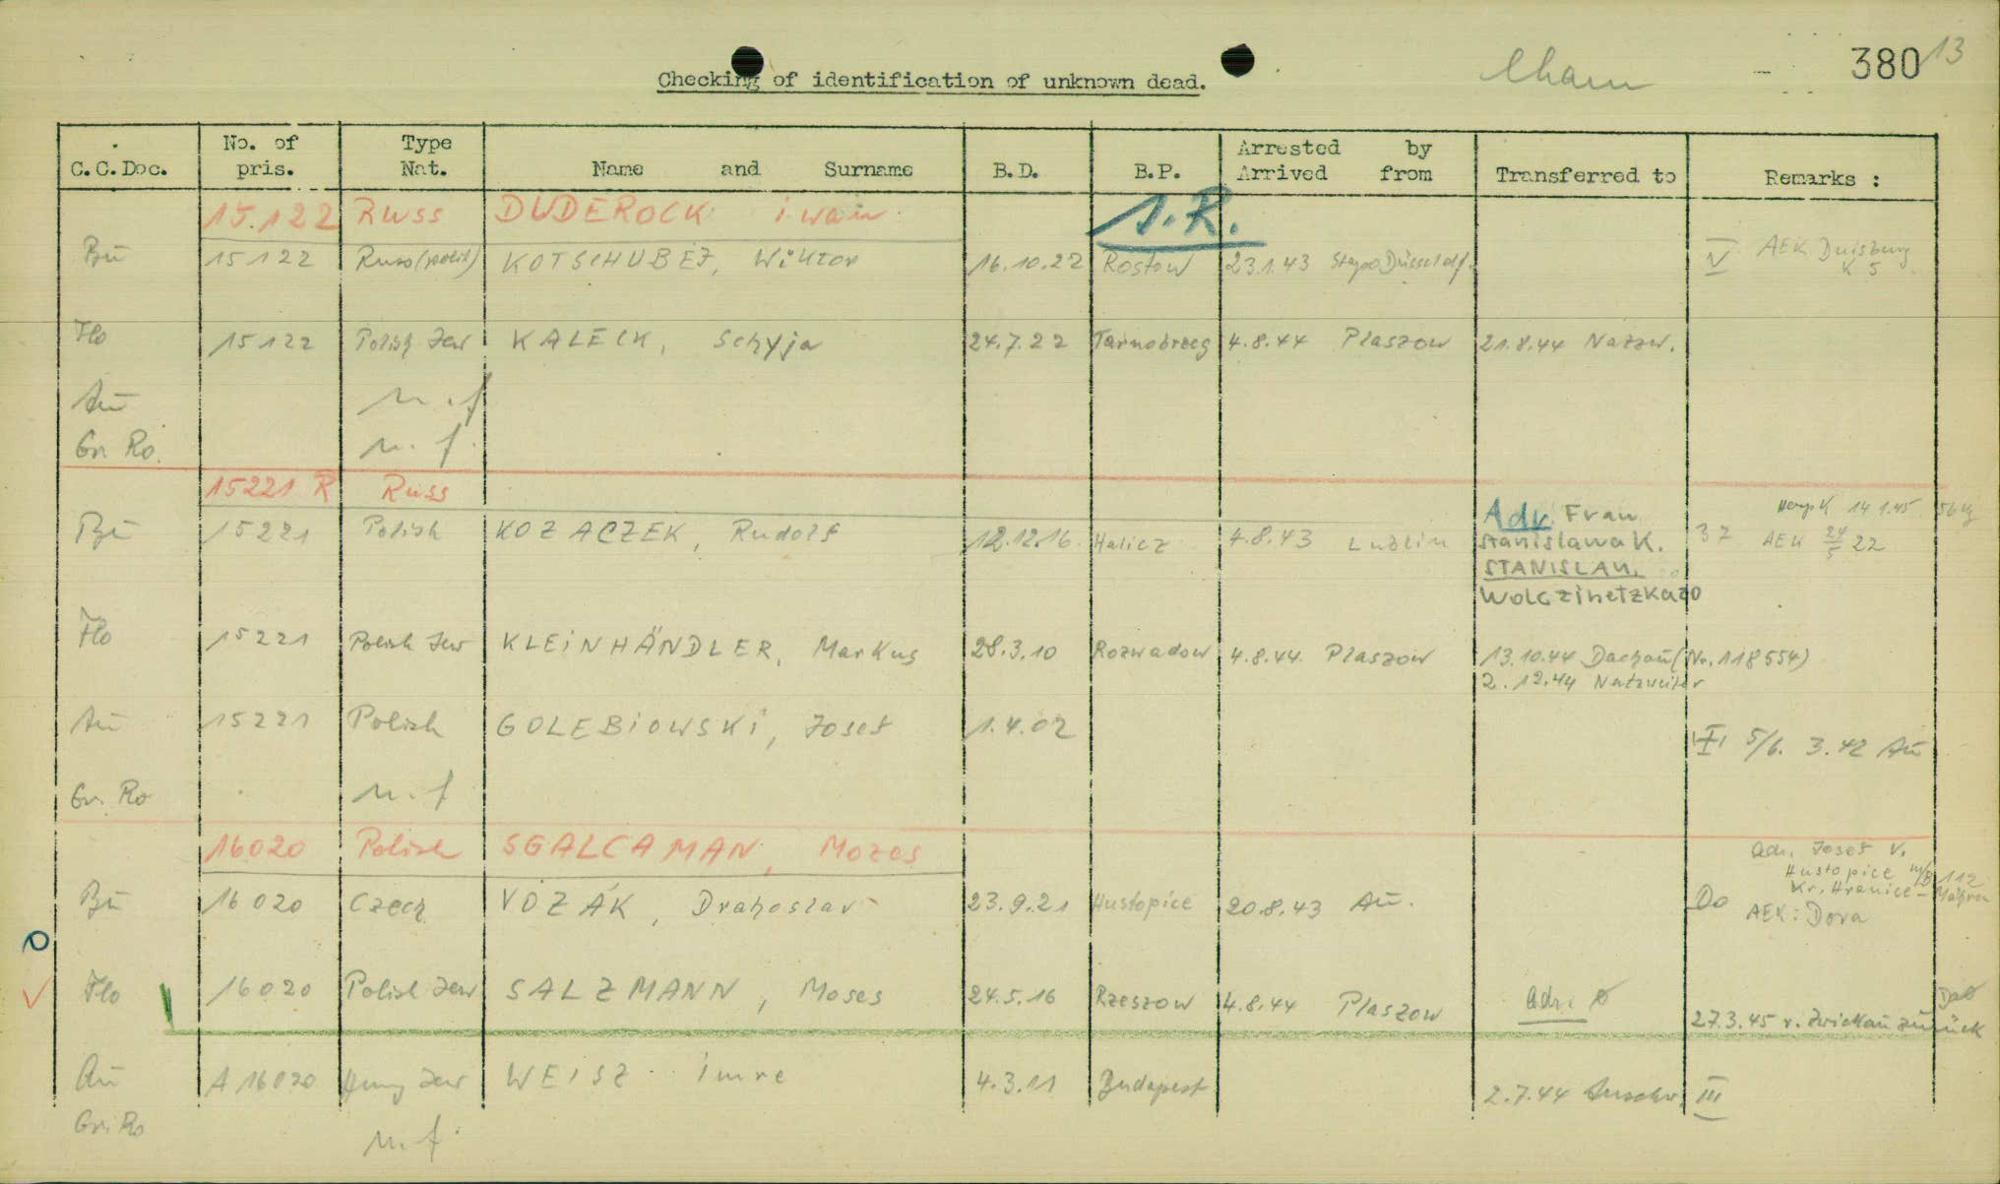 Cham 380 13
Checking of identification of unknown dead.
C.C.Doc. No. of pris. Type Nat. Name and Surname B.D. B.P. Arrested by Arrived from Transferred to Remarks :
15.122 Russ DUDEROCK iwan S.R.
Bu 15122 Russ(polit) KOTSCHUBEJ, Wiktor 16.10.22 Rostow 23.1.43 Stapo Düsseldf. V AEK Duisburg K 5
Flo 15122 Polish Jew KALECK, Schyja 24.7.22 Tarnobrzeg 4.8.44 Plaszow 21.8.44 Natzw.
Au n.f
Gr. Ro. n.f.
15221 R Russ
Bu 15221 Polish KOZACZEK, Rudolf 12.12.16 Halicz 4.8.43 Lublin Adr. Frau Stanislawa K. STANISLAU. Wolczinetzka 20 37 14.1.45 AEK 24/5 22
Flo 15221 Polish Jew KLEINHÄNDLER, Markus 28.3.10 Rozwadow 4.8.44 Plaszow 13.10.44 Dachau (Nr. 118554)
2.12.44 Natzweiler
Au 15221 Polish GOLEBIOWSKI, Josef 1.4.02 5/6. 3.42 Au
Gr. Ro n.f
16020 Polish SGALCAMAN, Mozes
Bu 16020 Czech VOZÁK, Drahoslav 23.9.21 Hustopice 20.8.43 Au. Do Adr. Josef V. Hustopice 112 Kr. Hranice - Mähren AEK: Dora
Flo 16020 Polish Jew SALZMANN, Moses 24.5.16 Rzeszow 4.8.44 Plaszow Adr. 27.3.45 v. Zwickau zurück
Au A 16020 Hung Jew WEISZ Imre 4.3.11 Budapest 2.7.44 III
Gr. Ro n.f.